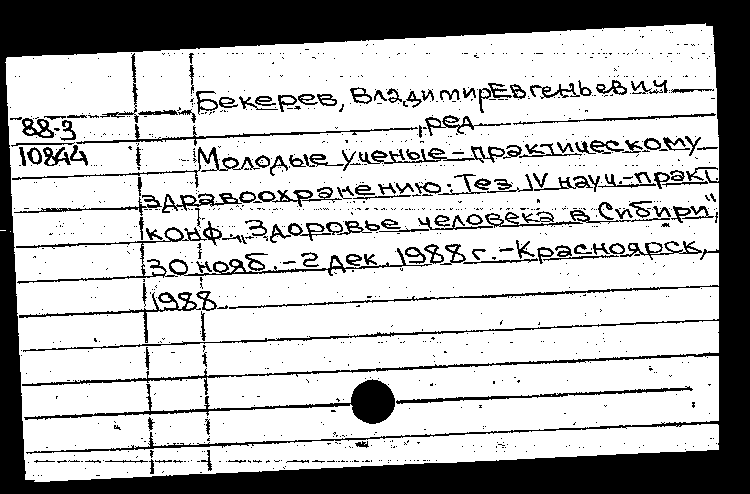 Бекерев, Владимир Евгеньевич
, ред
88-3
10844
Молодые ученые - практическому
здравоохранению: Тез. IV науч.-практ.
конф. „Здоровье человека в Сибири",
30 нояб. - 2 дек. 1988 г. - Красноярск,
1988